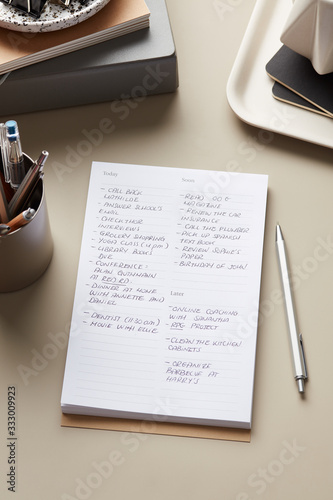 Today
- CALL BACK
MATHILDE
- ANSWER SCHOOL'S
EMAIL
- CHECK HSE
INTERVIEWS
- GROCERY SHOPPING
YOGA CLASS (4 PM)
- LIBRARY BOOKS
DUE
- CONFERENCE -
ALAN
AT
- DINNER AT HOME
WITH ANNETTE AND
DANIEL
- DENTIST (11:30 AM)
- MOVIE WITH ELLIE
Soon
- READ
MAGAZINE
- RENEW THE CAR
INSURANCE
- CALL THE PLUMBER
- PICK UP SPANISH
TEXT BOOK
- REVIEW SOFIE'S
PAPER
- BIRTHDAY OF JOHN
Later
- ONLINE COACHING
WITH SAMANTHA
- RPG PROJECT
- CLEAN THE KITCHEN
CABINETS
- ORGANIZE
BARBECUE AT
HARRY'S
Adobe Stock | #333009923